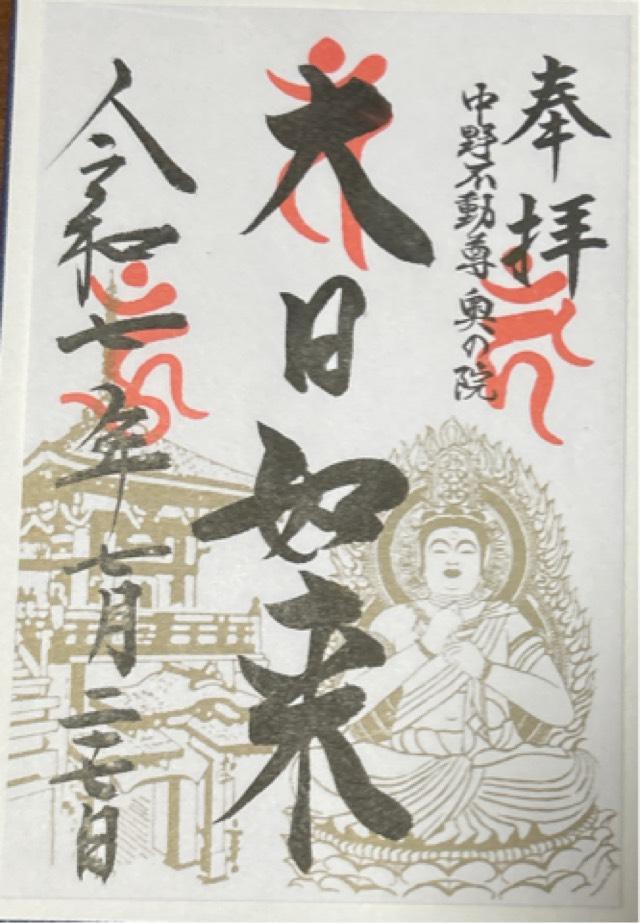 奉拝
中野不動尊 奥の院
大日如来
令和七年七月二十七日